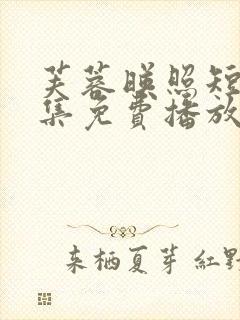 芙蓉暎照短
集免費播放
来栖夏芽 紅野